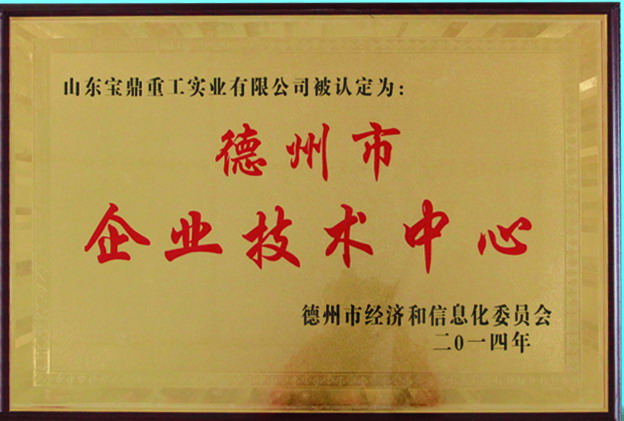 山东宝鼎重工实业有限公司被认定为:
德州市
企业技术中心
德州市经济和信息化委员会
二0一四年